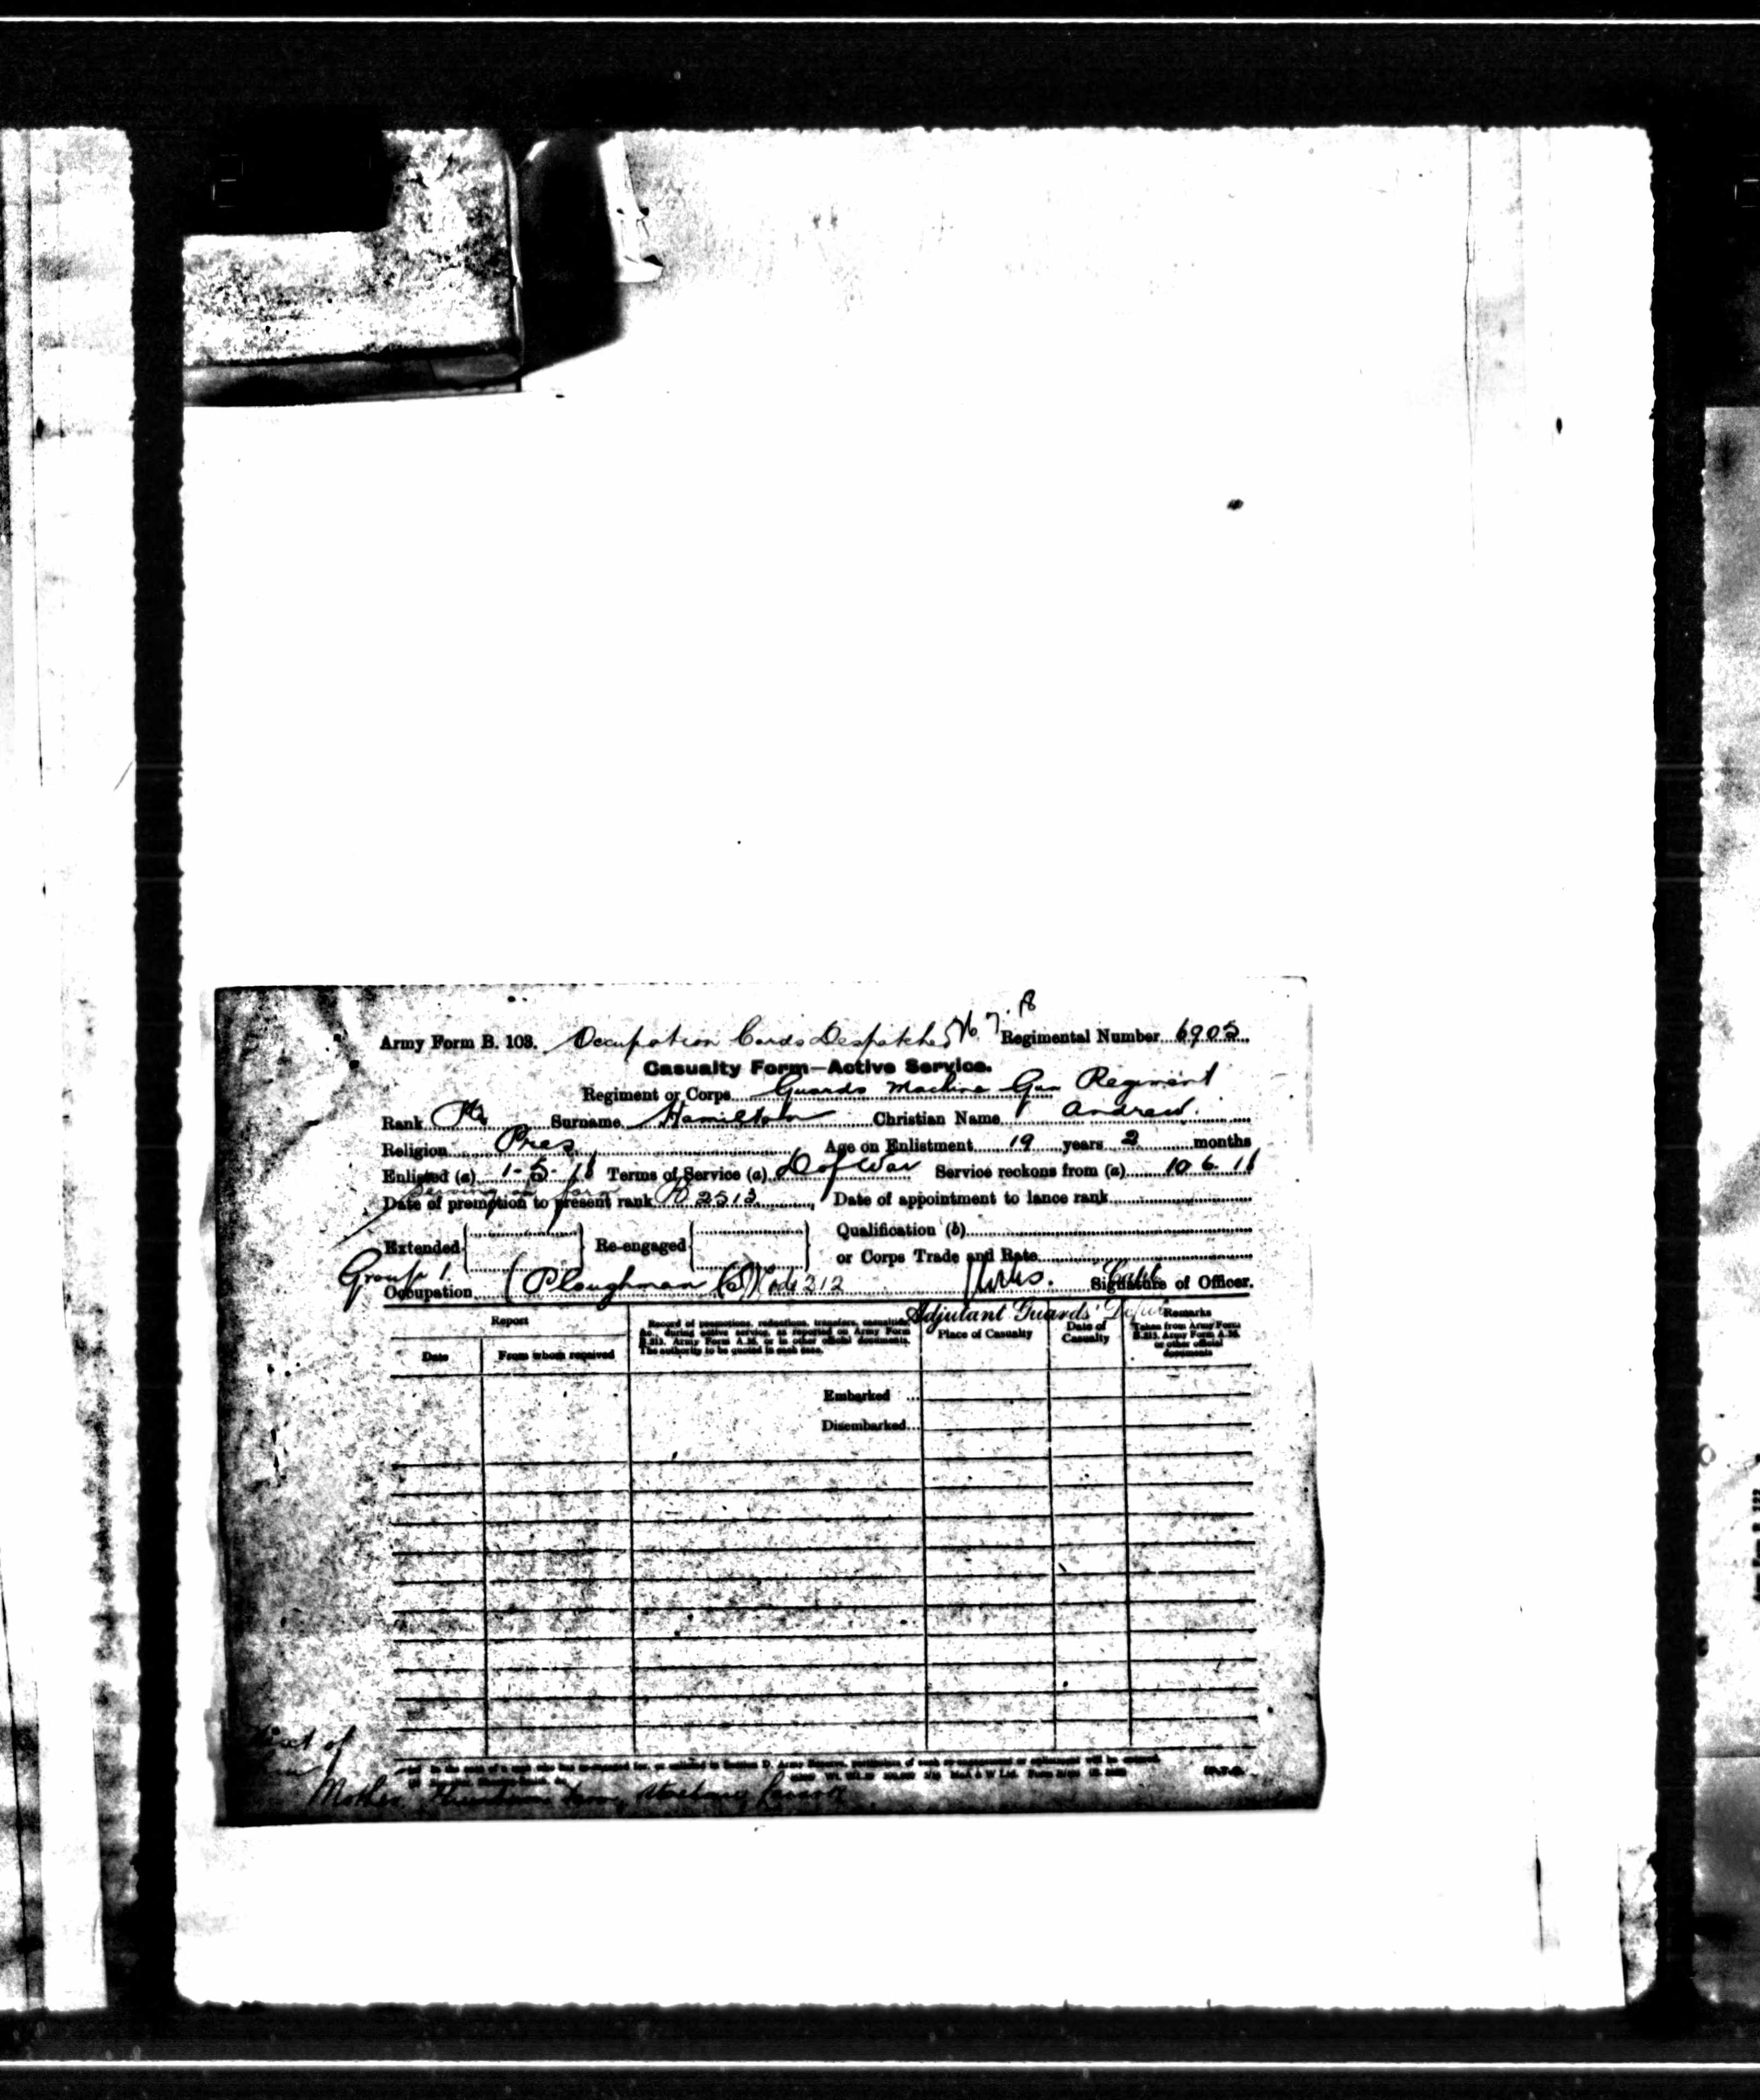 Army Form B. 103. Occupation Cards Despatched Regimental Number 6905
Casualty Form—Active Service.
Regiment or Corps Guards Machine Gun Regiment
Rank Pte Surname Hamilton Christian Name Andrew.
Religion Pres Age on Enlistment 19 years 2 months
Enlisted (a) 1-5-18 Terms of Service (a) D of War Service reckons from (a) 10.6.18
Date of promotion to present rank Date of appointment to lance rank
Extended Re-engaged Qualification (b)
or Corps Trade and Rate
Group 1.
Occupation (Ploughman (S)) Code 212 Signature of Officer.
Adjutant Guards' Depot
Report
Date
From whom received
Record of promotions, reductions, transfers, casualties, &c., during active service, as reported on Army Form B.213, Army Form A.36, or in other official documents. The authority to be quoted in each case.
Place of Casualty
Date of Casualty
Remarks
Taken from Army Form B.213, Army Form A.36, or other official documents
Embarked ...
Disembarked...
Mother